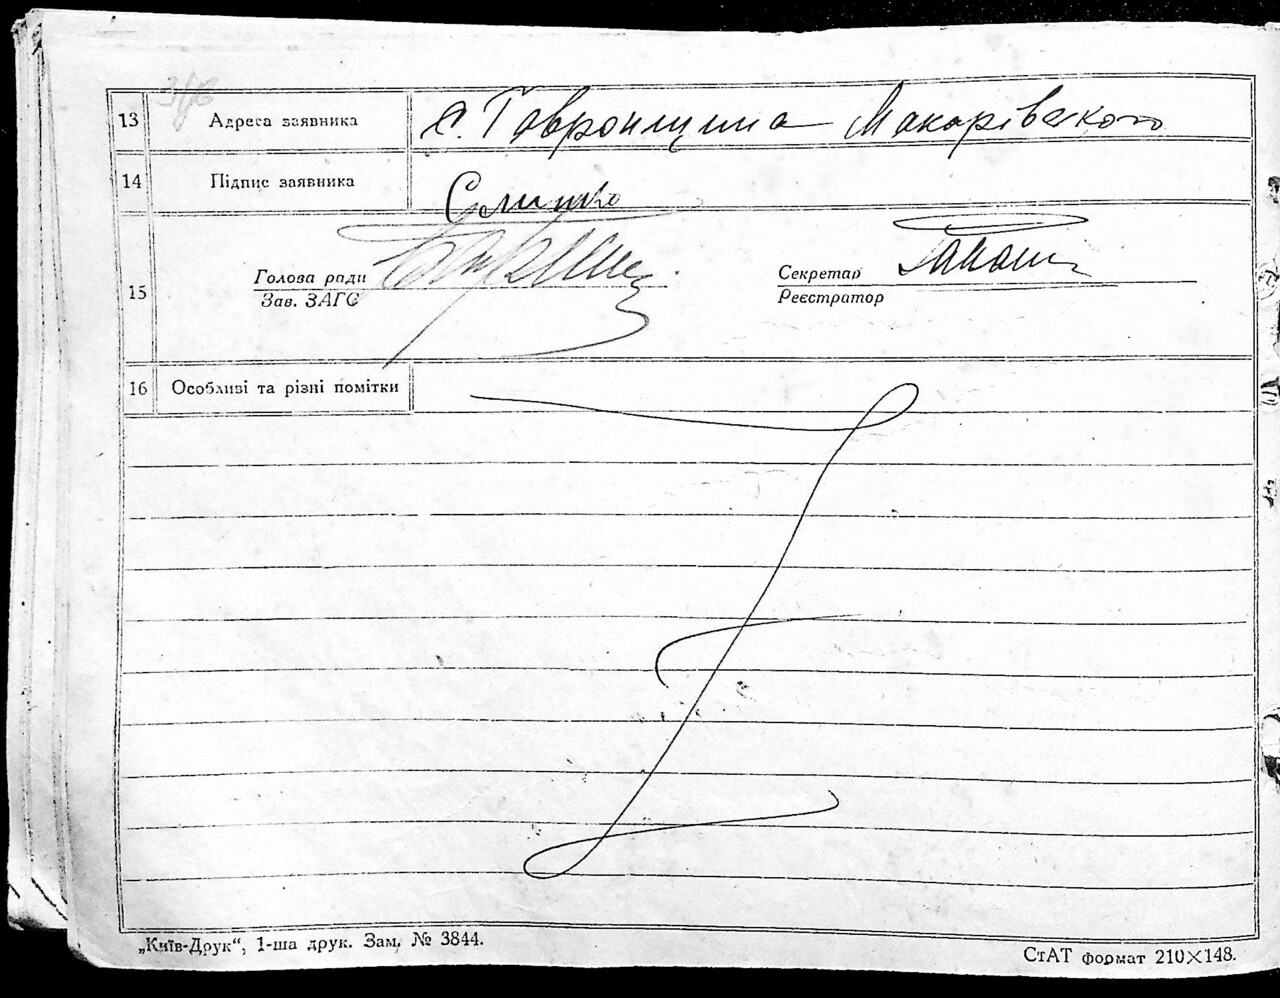 13 Адреса заявника с. Гавронщина Макарівського
14 Підпис заявника Слишко
Голова ради Секретар
15 Зав. ЗАГС Реєстратор
16 Особливі та різні помітки
„Київ-Друк“, 1-ша друк. Зам. № 3844. СтАТ формат 210×148.